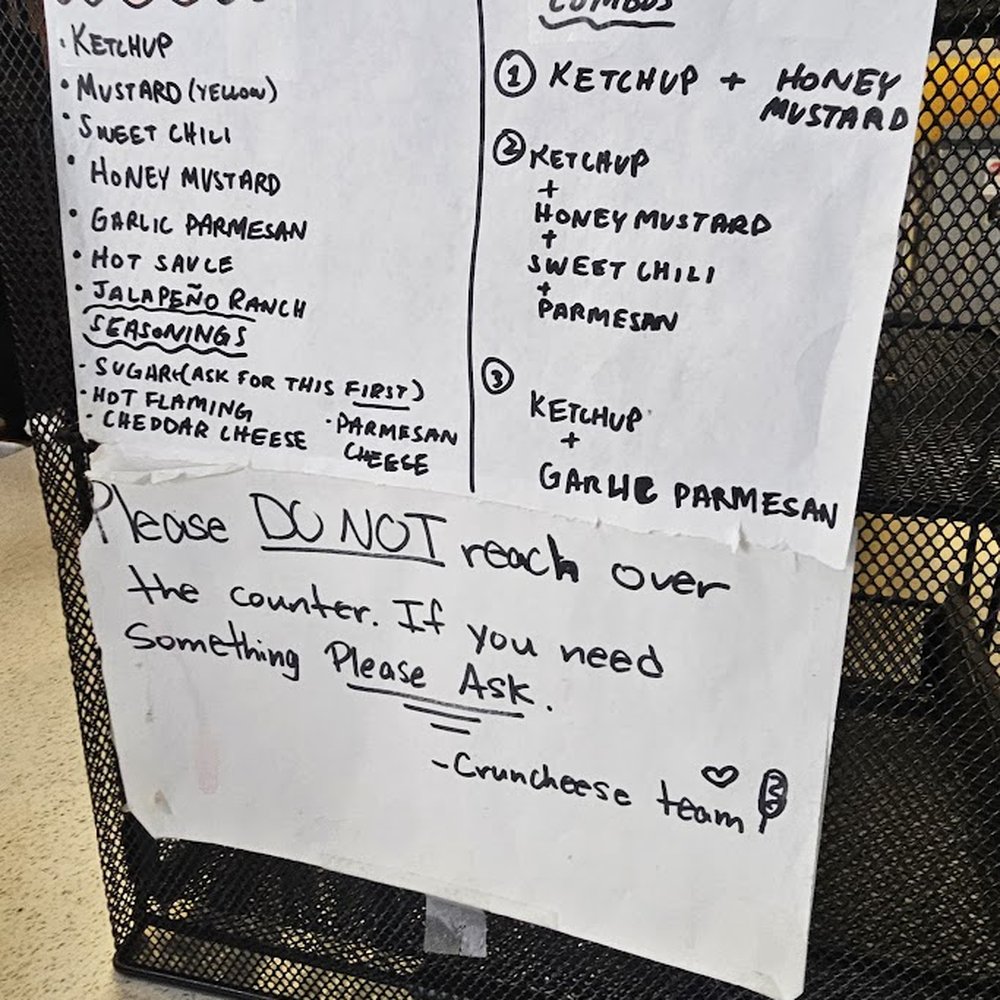 • KETCHUP
• MUSTARD (YELLOW)
• SWEET CHILI
• HONEY MUSTARD
• GARLIC PARMESAN
• HOT SAUCE
• JALAPEÑO RANCH
SEASONINGS
- SUGAR (ASK FOR THIS FIRST)
- HOT FLAMING
- CHEDDAR CHEESE
• PARMESAN
CHEESE
COMBOS
① KETCHUP + HONEY
MUSTARD
② KETCHUP
+
HONEY MUSTARD
+
SWEET CHILI
+
PARMESAN
③
KETCHUP
+
GARLIC PARMESAN
Please DO NOT reach over
the counter. If you need
something Please Ask.
- Cruncheese team